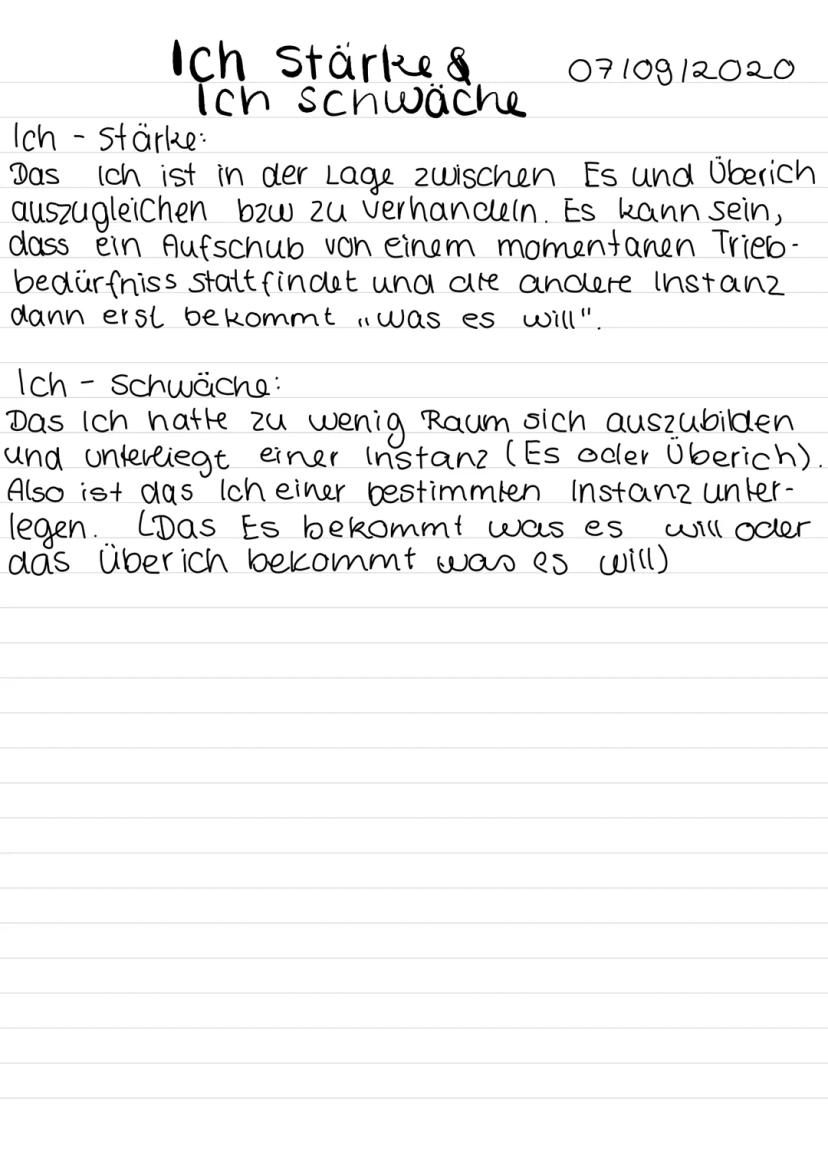 Ich Stärke &
Ich schwäche
07/09/2020
Ich - stärke:
Das Ich ist in der Lage zwischen Es und Überich
auszugleichen bzw zu verhandeln. Es kann sein,
dass ein Aufschub von einem momentanen Trieb-
bedürfniss stattfindet und die andere Instanz
dann erst bekommt „was es will".
Ich - schwäche:
Das Ich hatte zu wenig Raum sich auszubilden
und unterliegt einer Instanz (Es oder Überich).
Also ist das Ich einer bestimmten Instanz unter-
legen. (Das Es bekommt was es will oder
das Überich bekommt was es will)